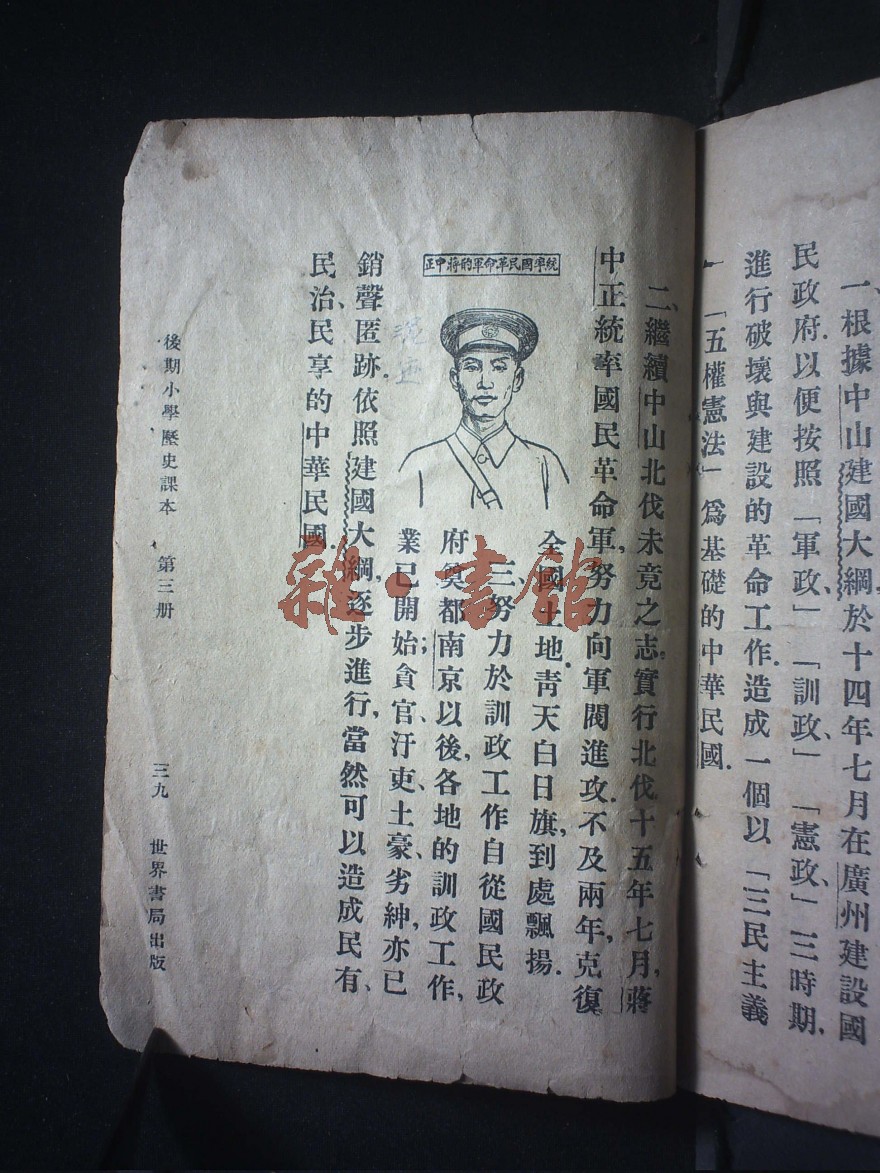 一、根據中山建國大綱，於十四年七月在廣州建設國
民政府，以便按照「軍政」、「訓政」、「憲政」三時期，
進行破壞與建設的革命工作，造成一個以「三民主義
」「五權憲法」爲基礎的中華民國．
二、繼續中山北伐未竟之志，實行北伐，十五年七月，蔣
中正統率國民革命軍，努力向軍閥進攻．不及兩年，克復
全國土地．靑天白日旗，到處飄揚．
三、努力於訓政工作，自從國民政
府奠都南京以後，各地的訓政工作，
業已開始；貪官、汙吏、土豪、劣紳，亦已
銷聲匿跡．依照建國大綱，逐步進行，當然可以造成民有、
民治、民享的中華民國．
統率國民革命軍的蔣中正
後期小學歷史課本　第三册　三九　世界書局出版
雜·書館